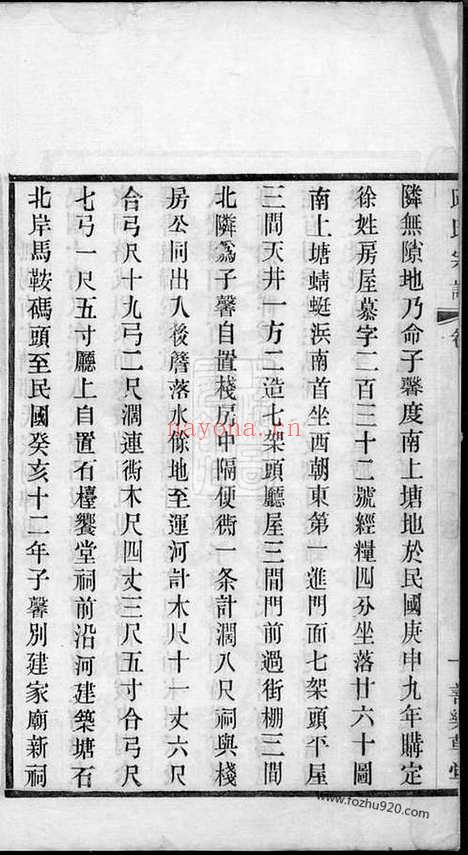 隣無隙地乃命子馨度南上塘地於民國庚申九年購定
徐姓房屋慕字二百三十二號經糧四分坐落廿六十圖
南上塘蜻蜓浜南首坐西朝東第一進門面七架頭平屋
三間天井一方二造七架頭廳屋三間門前過街棚三間
北隣爲子馨自置棧房中隔便衖一条計濶八尺祠與棧
房公同出入後簷落水餘地至運河計木尺十一丈六尺
合弓尺十九弓二尺濶連衖木尺四丈三尺五寸合弓尺
七弓一尺五寸廳上自置石檯饗堂祠前沿河建築塘石
北岸馬鞍碼頭至民國癸亥十二年子馨別建家廟新祠
nayona.cn
www.fozhu920.com